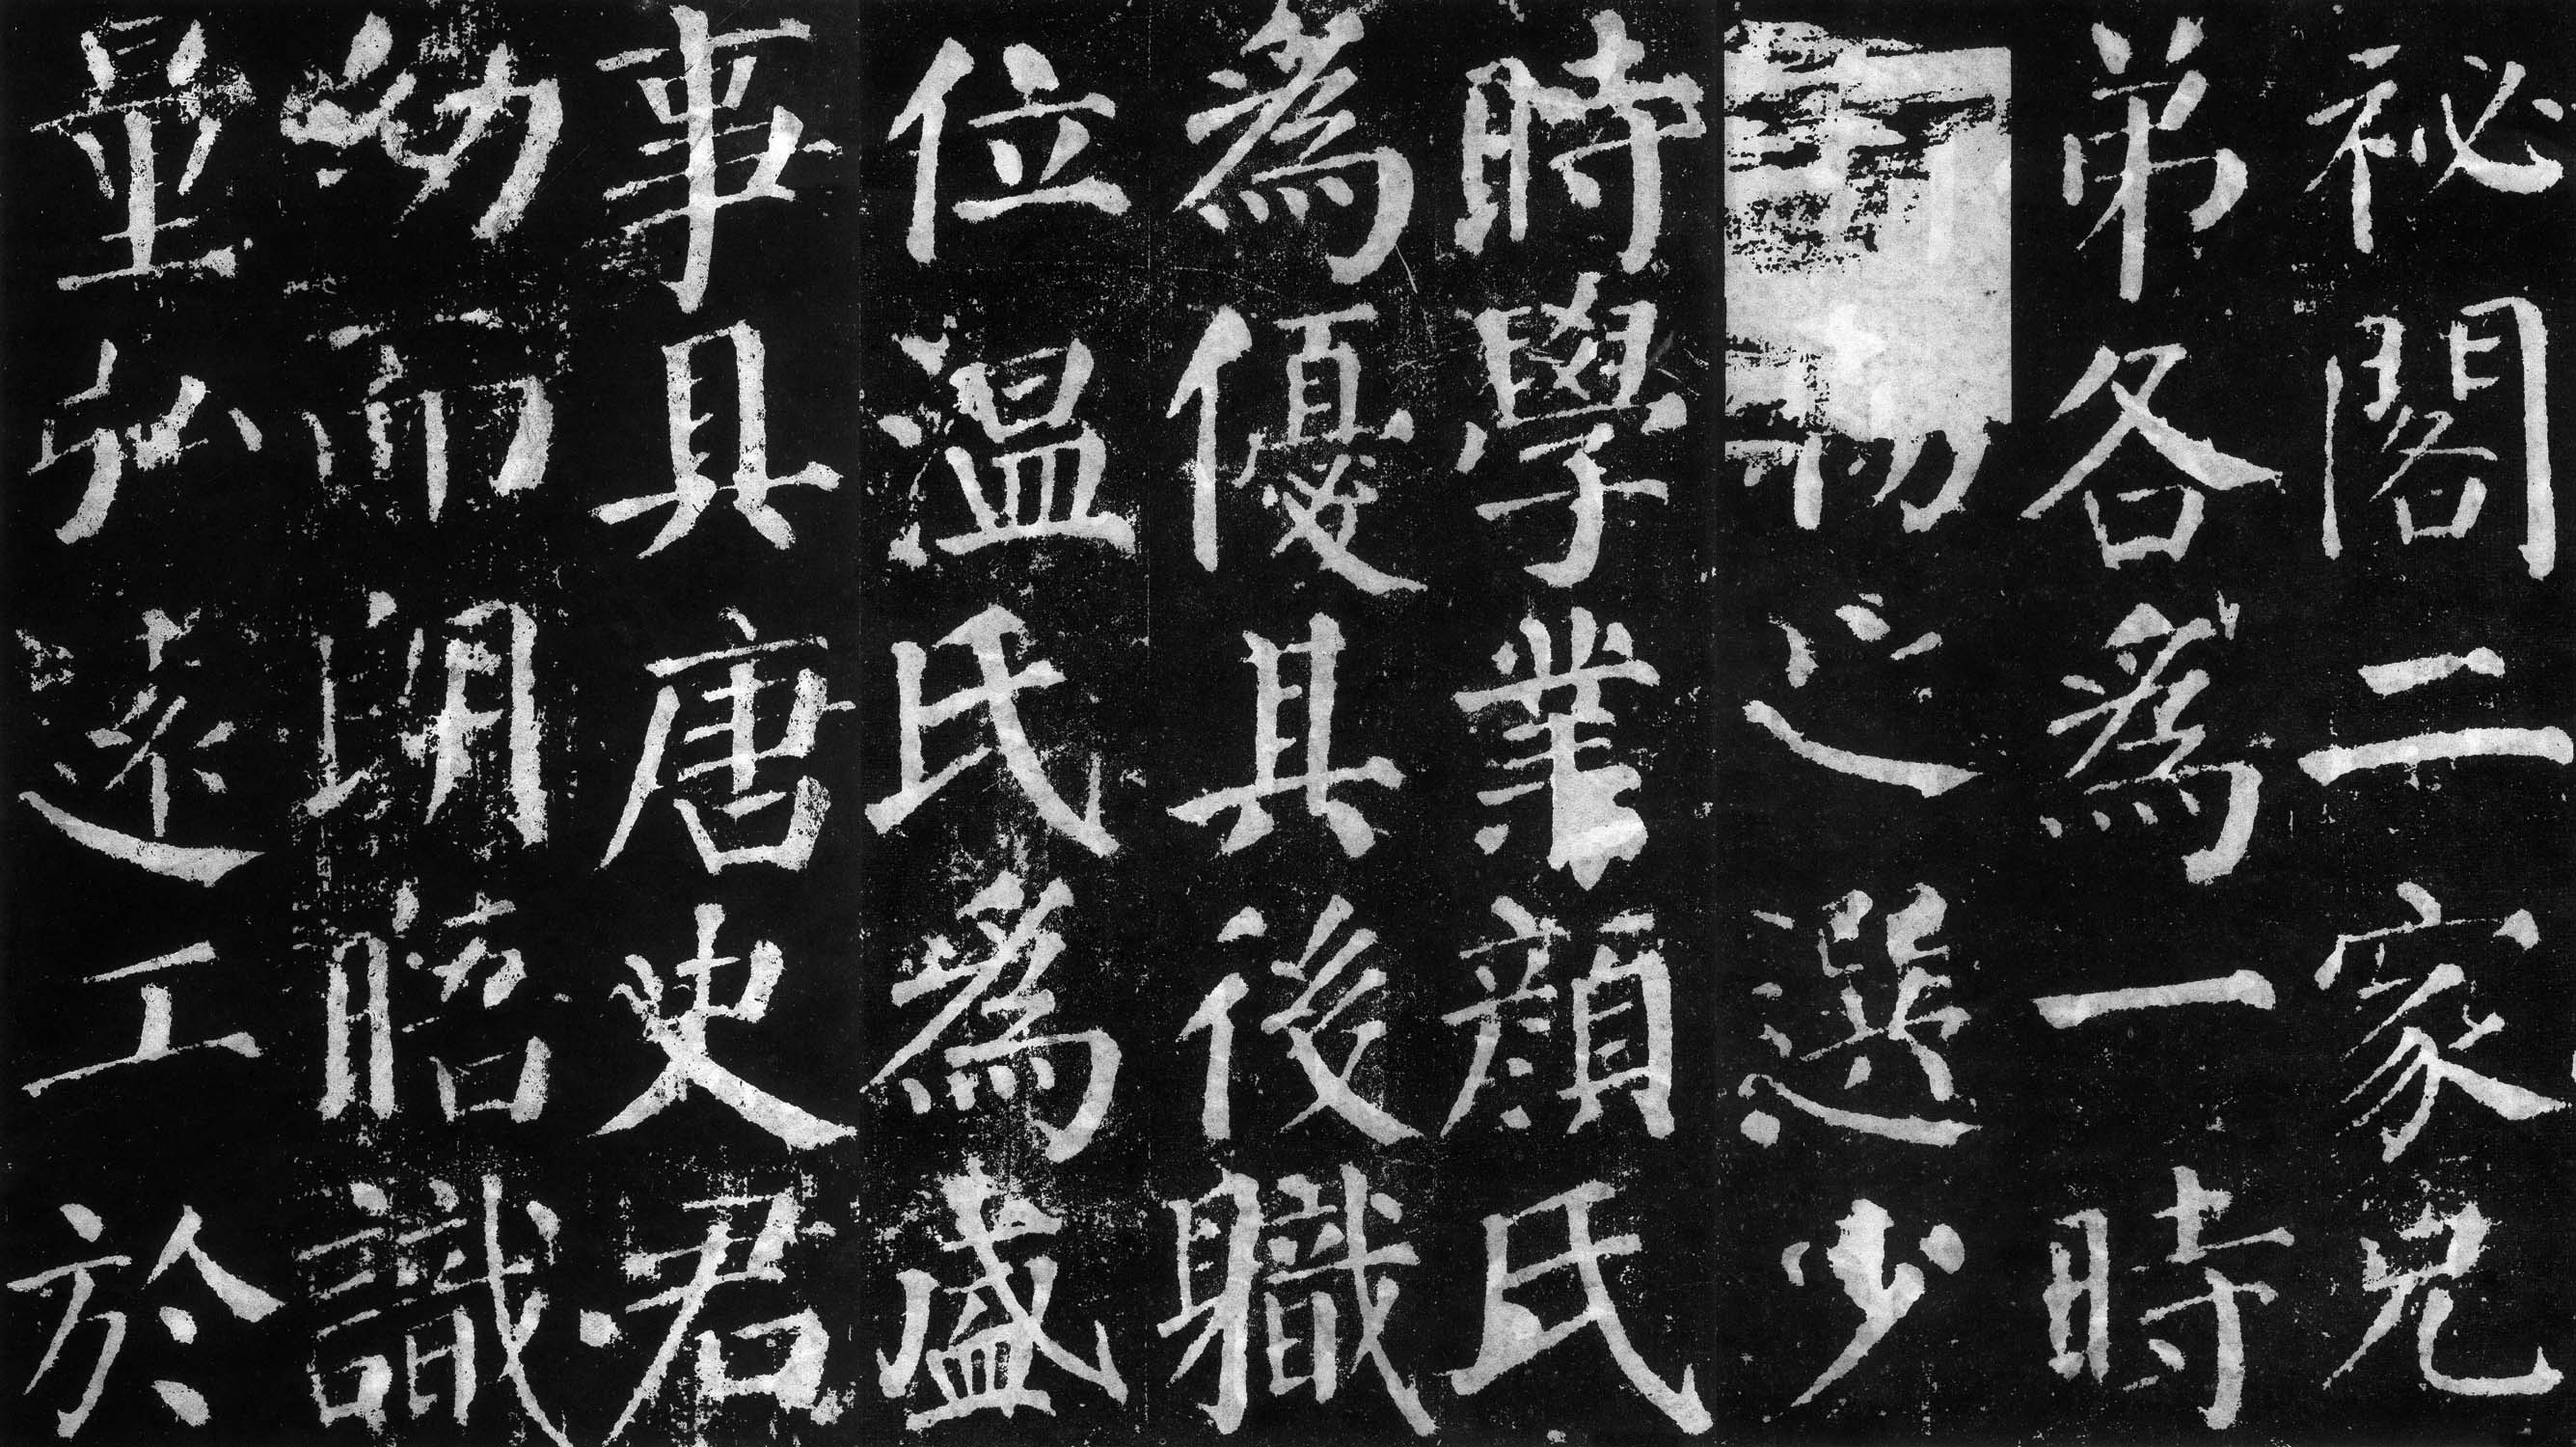 祕閣二家兄
弟各爲一時
物之選少
時學業顔氏
爲優其後軄
位温氏爲盛
事具唐史君
幼而朗晤識
量弘遠工於